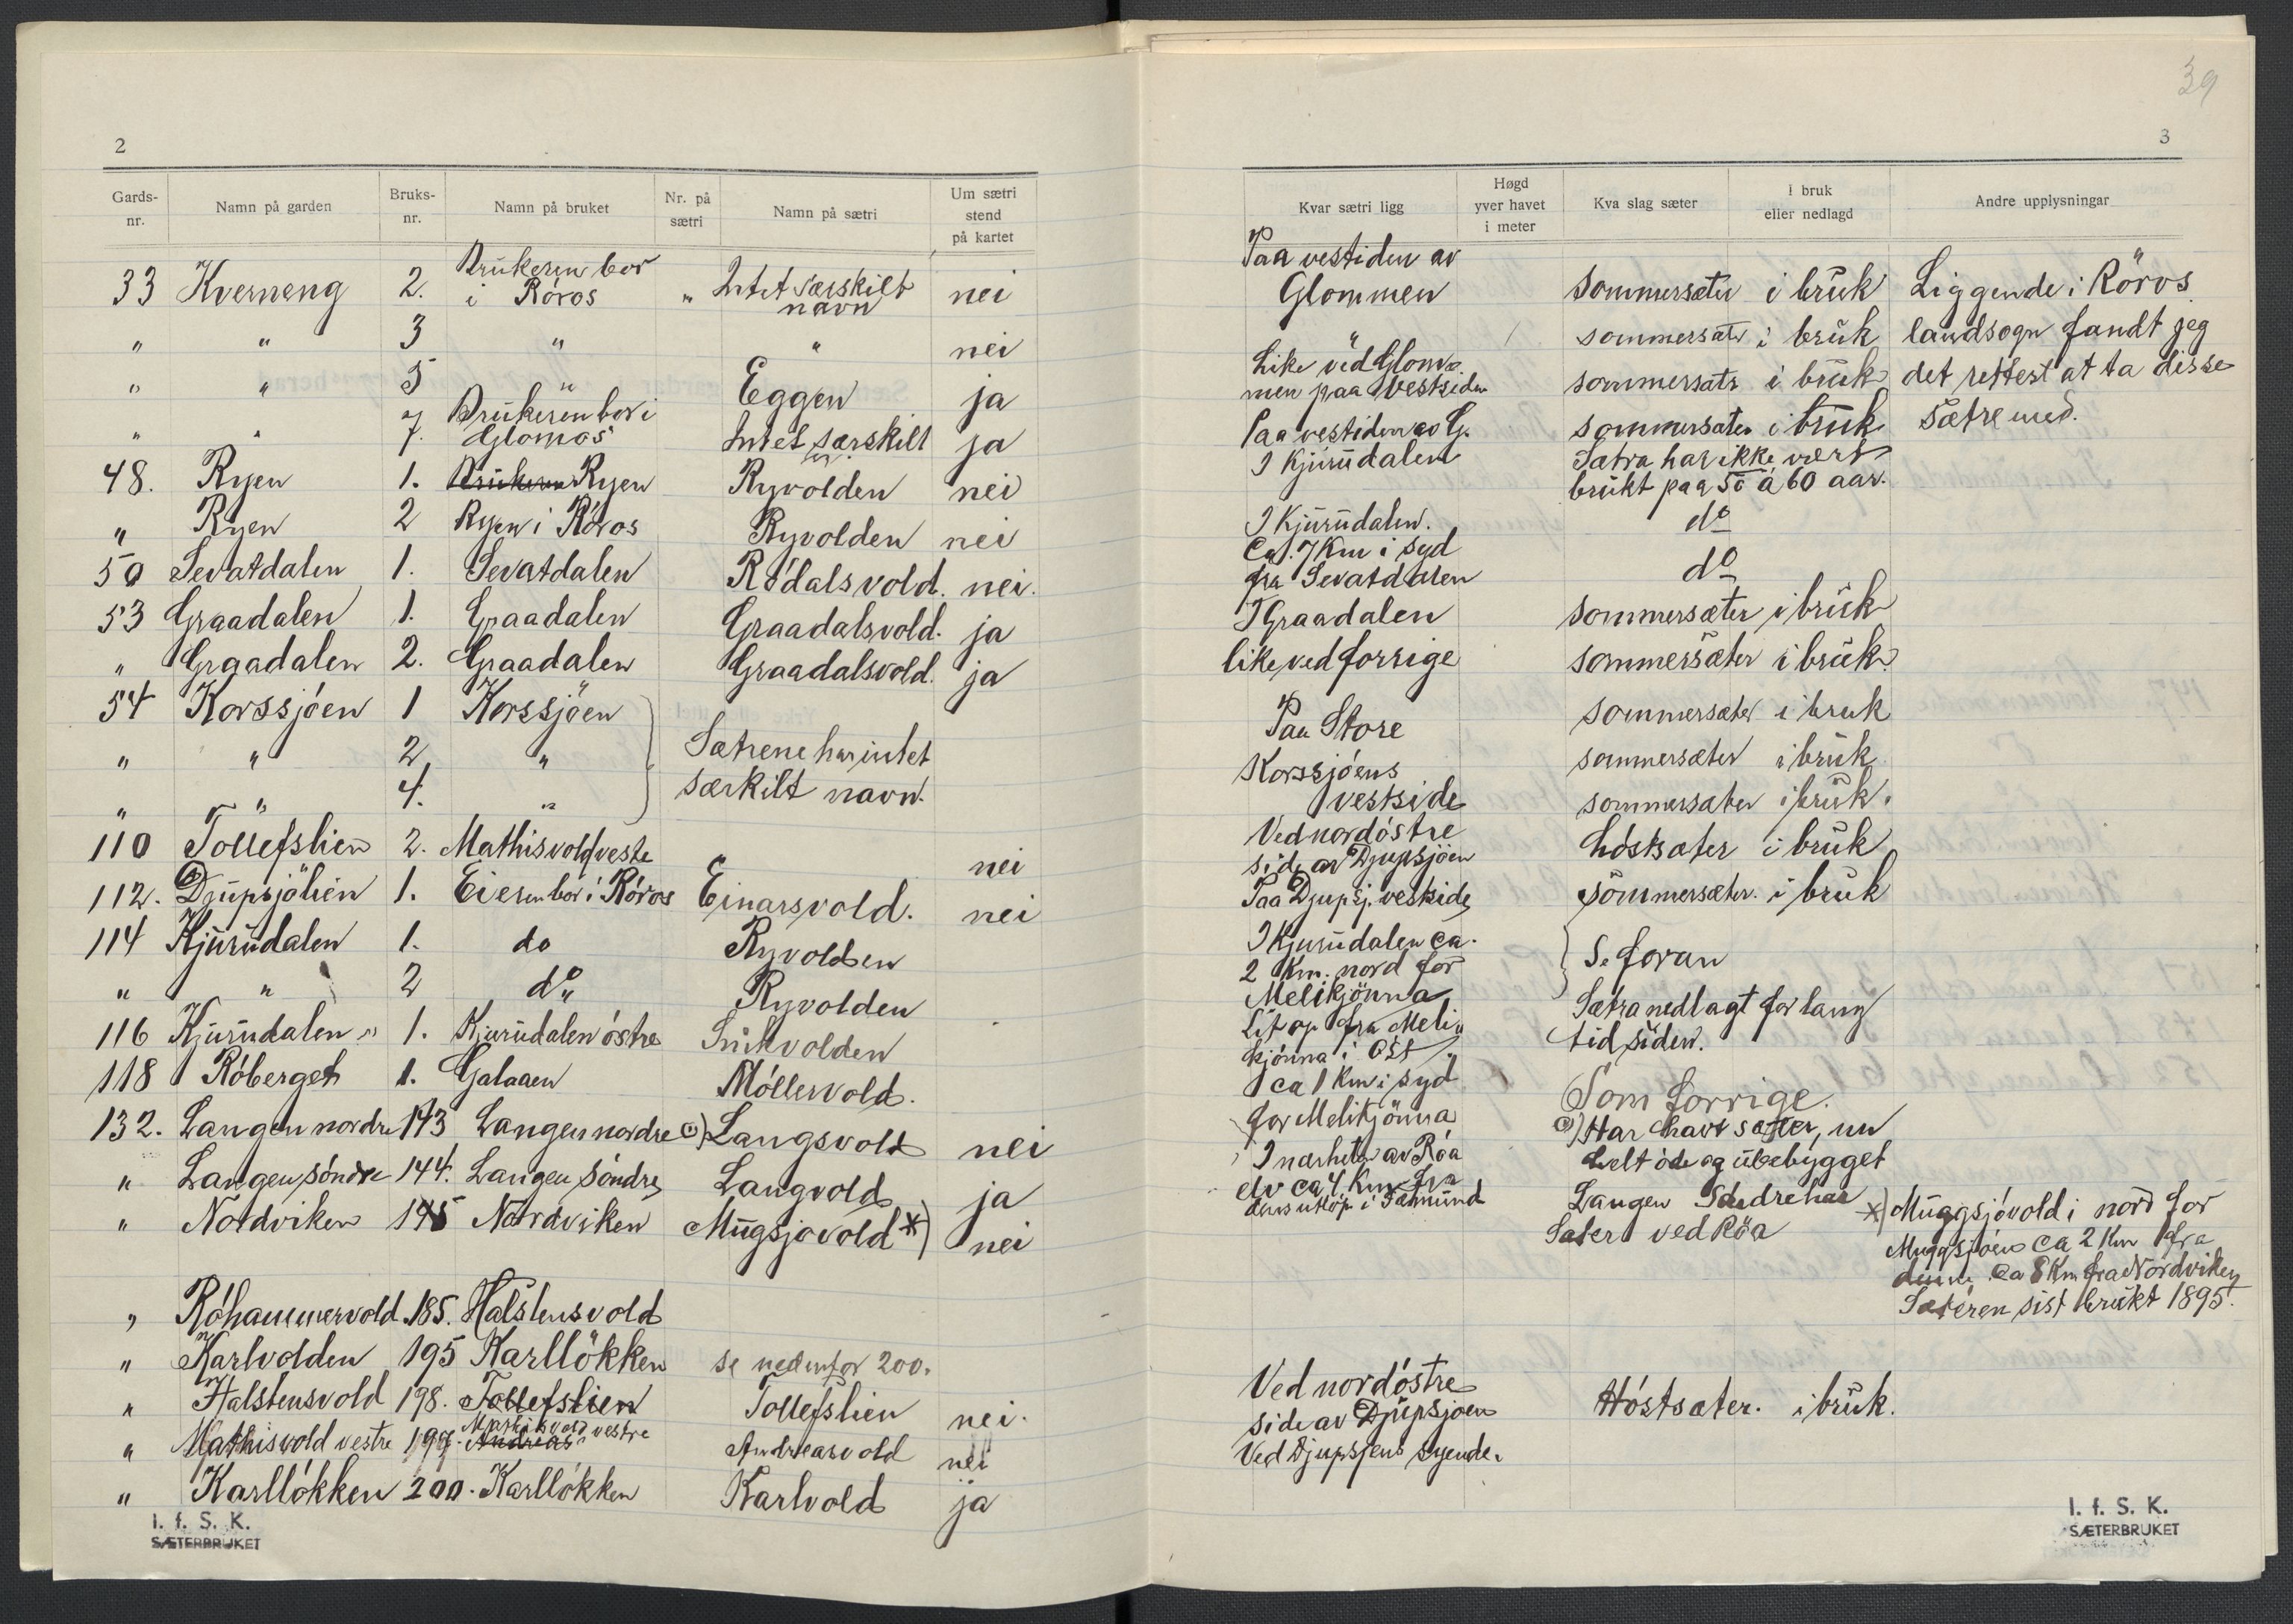 2
Gards-nr. Namn på garden Bruks-nr. Namn på bruket Nr. på sætri Namn på sætri Um sætri stend på kartet
33 Kverneng 2. Brukeren bor i Röros " Intet særskilt navn nei
" " 3 " " nei
" " 5 " Eggen ja
" " 7. Brukeren bor i Glomos Intet særskilt ja
48. Ryen 1. Ryen Ryvolden nei
" Ryen 2 Ryen i Röros Ryvolden nei
50 Sevatdalen 1. Sevatdalen Rödalsvold. nei.
53 Graadalen 1. Graadalen Graadalsvold. ja
" Graadalen 2. Graadalen Graadalsvold. ja
54 Korssjöen 1 Korssjöen
" " 2 " Sætrene har intet
" " 4. " særkilt navn.
110 Tollefslien 2. Mathisvold veste nei
112. Djupsjölien 1. Eieren bor i Röros Einarsvold. nei
114 Kjurudalen 1. do Ryvolden
" " 2 do " Ryvolden
116 Kjurudalen " 1. Kjurudalen östre Sukvolden
118 Röberget 1. Galaaen Möllervold.
132. Langen nordre 143 Langen nordre @) Langsvold nei
" Langen söndre 144. Langen söndre Langvold ja
" Nordviken 145 Nordviken Mugsjovold *) nei
" Röhammervold 185. Halstensvold
" Karlvolden 195 Karllökken se nedenfor 200.
" Halstensvold 198. Tollefslien Tollefslien nei.
" Mathisvold vestre 199. Andreas Mathisvold vestre Andreasvold nei
" Karllökken 200. Karllökken Karlvold ja
I. f. S. K.
SÆTERBRUKET
39
3
Kvar sætri ligg Høgd yver havet i meter Kva slag sæter I bruk eller nedlagd Andre upplysningar
Paa vestiden av
Glommen sommersæter i bruk Liggende i Röros
" sommersæter i bruk landsogn fandt jeg
Like ved Glom-
men paa vestsiden sommersætr i bruk det rettest at ta disse
Paa vestiden av G. sommersæter i bruk sætre med.
I Kjurudalen Sætra har ikke vært
brukt paa 50 à 60 aar.
I Kjurudalen. do
Ca. 7 Km i syd
fra Sevatdalen do
I Graadalen sommersæter i bruk
like ved forrige sommersæter i bruk.
Paa Store sommersæter i bruk
Korssjöens sommersæter i bruk
vestside sommersæter i bruk.
Ved nordöstre
side av Djupsjöen höstsæter i bruk
Paa Djupsj. vestside sommersæter. i bruk
I Kjurudalen ca.
2 Km. nord for Se foran
Melikjönna
Sætra nedlagt for lang
Lit op fra Meli-
kjönna i Öst. tid siden.
ca 1 Km i syd
for Melikjönna Som forrige.
@) Har havt sæter, nu
I nærheten av Röa helt öde og ubebygget
elv ca 4 Km fra
dens utlöp i Fæmund Langen Söndre har
Sæter ved Röa
*) Muggsjövold i nord for
Muggsjöen ca 2 Km fra
denne. Ca 8 Km fra Nordviken
Sæteren sist brukt 1895.
Ved nordöstre
side av Djupsjoen Höstsæter. i bruk.
Ved Djupsjens syende.
I. f. S. K.
SÆTERBRUKET